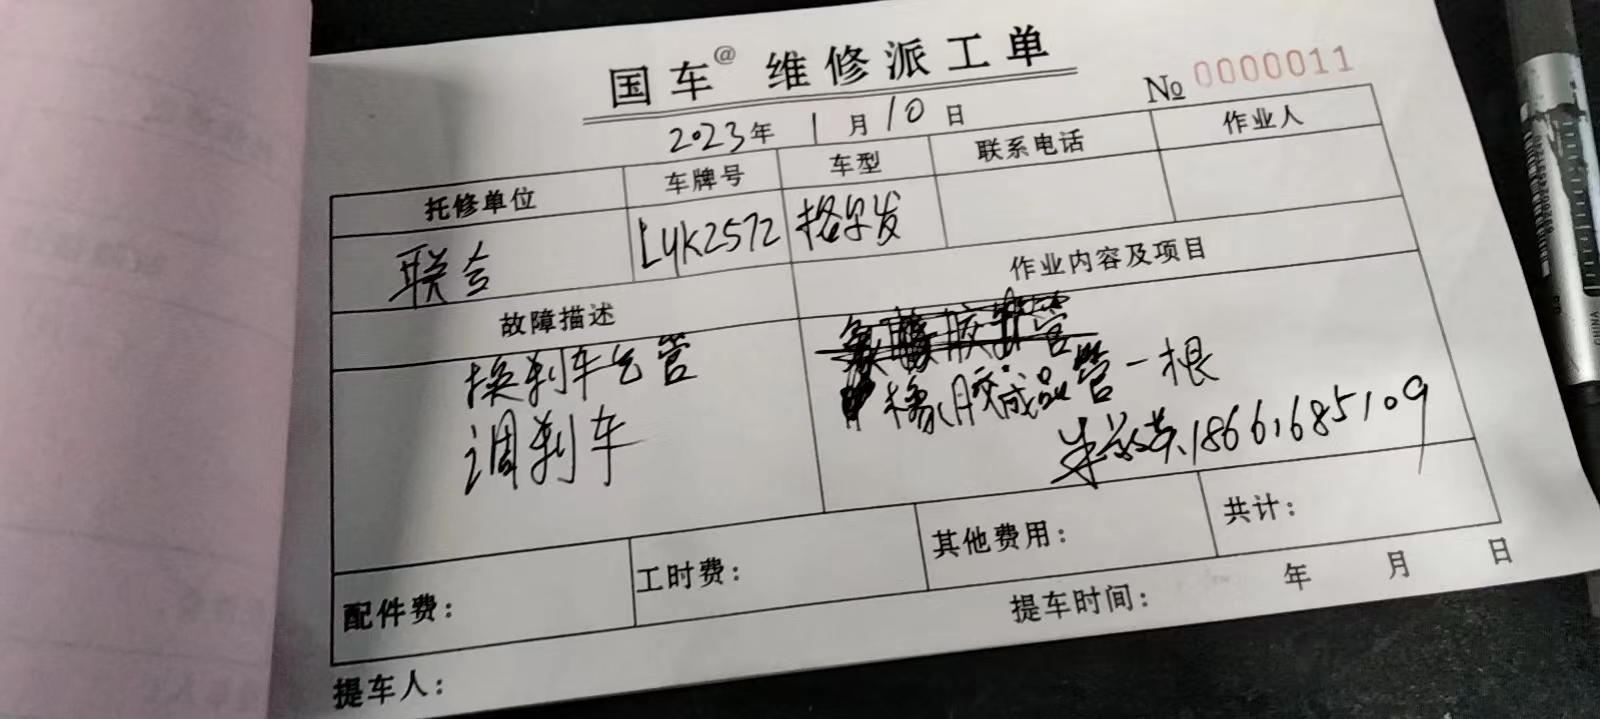 国车@ 维修派工单
№ 0000011
2023年 1月10日
托修单位 车牌号 车型 联系电话 作业人
联合 LYK2572 格尔发
故障描述 作业内容及项目
换刹车气管
调刹车
橡胶成品管一根
18661685109
配件费： 工时费： 其他费用： 共计：
提车人： 提车时间： 年 月 日